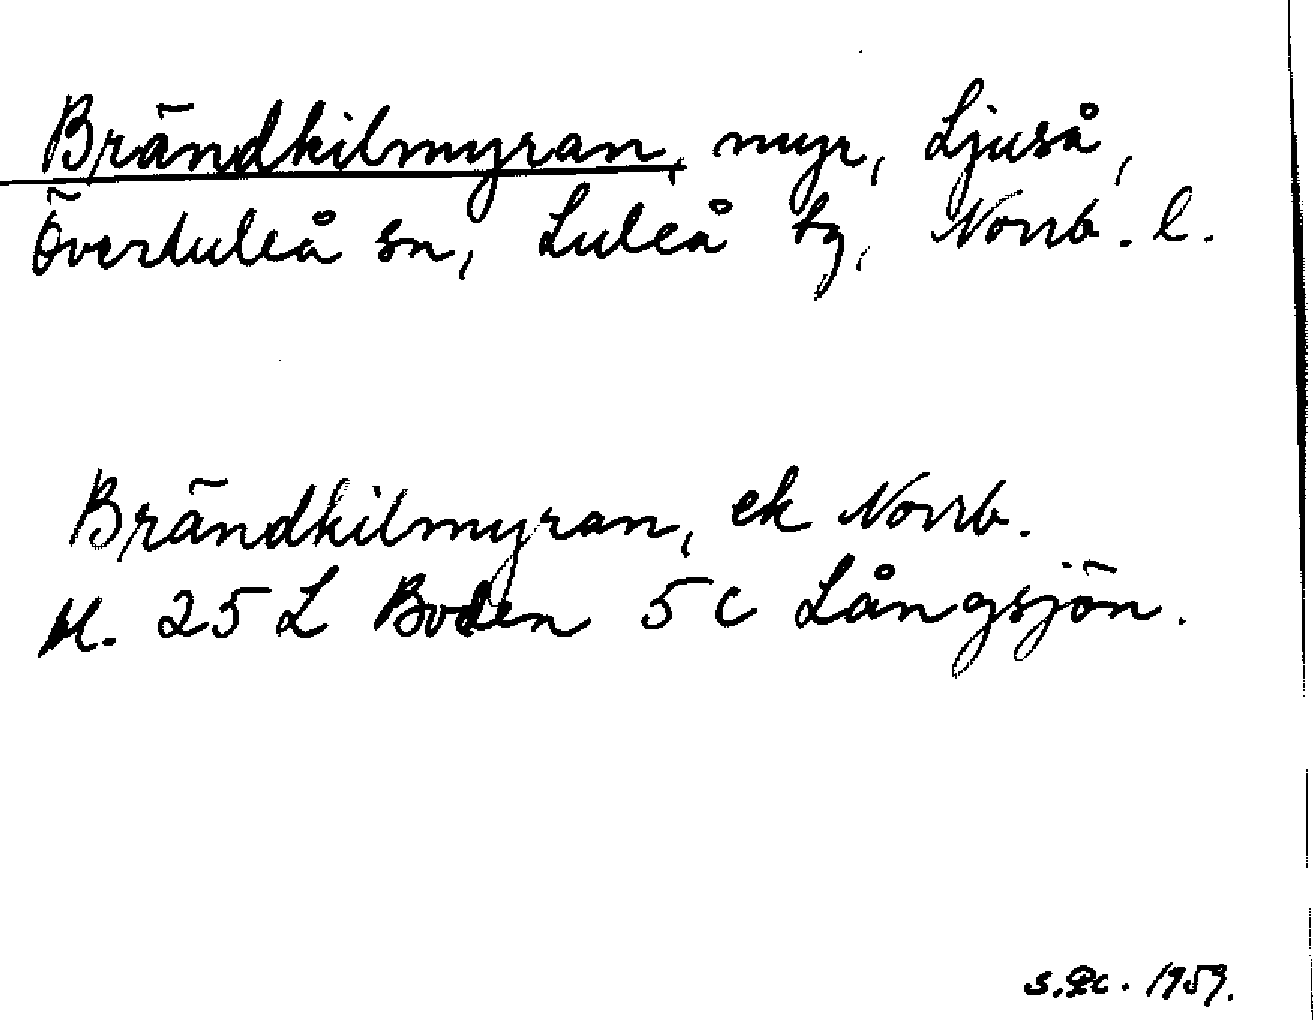 Brändkilmyran, myr, Ljuså,
Överluleå sn, Luleå tg, Norrb. l.
Brändkilmyran, ek Norrb.
bl. 25 L Boden 5 c Långsjön.
1959.